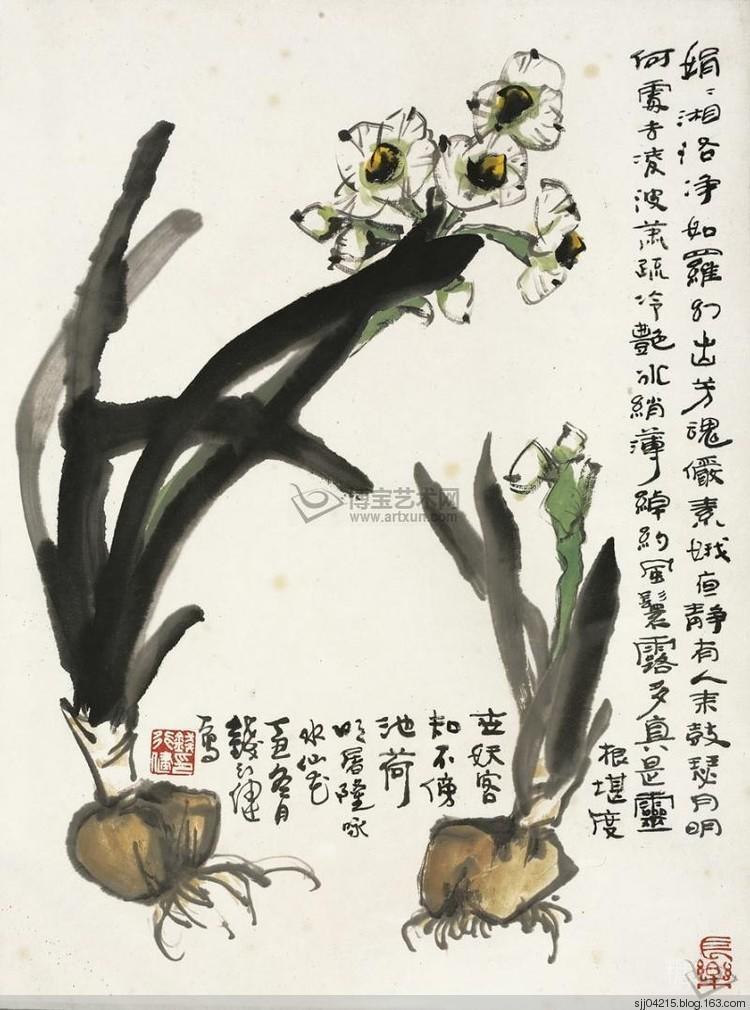 娟〻湘洛净如羅幻出芳魂儼素娥夜靜有人来鼓瑟月明
何處去凌波蕭疏冷艷冰綃薄綽約風鬟露多真是靈
根堪度
世妖容
知不傍
池荷
明屠隆咏
水仙花
丁丑冬月
錢行健
寫
長樂
博宝艺术网
www.artxun.com
sjj04215.blog.163.com